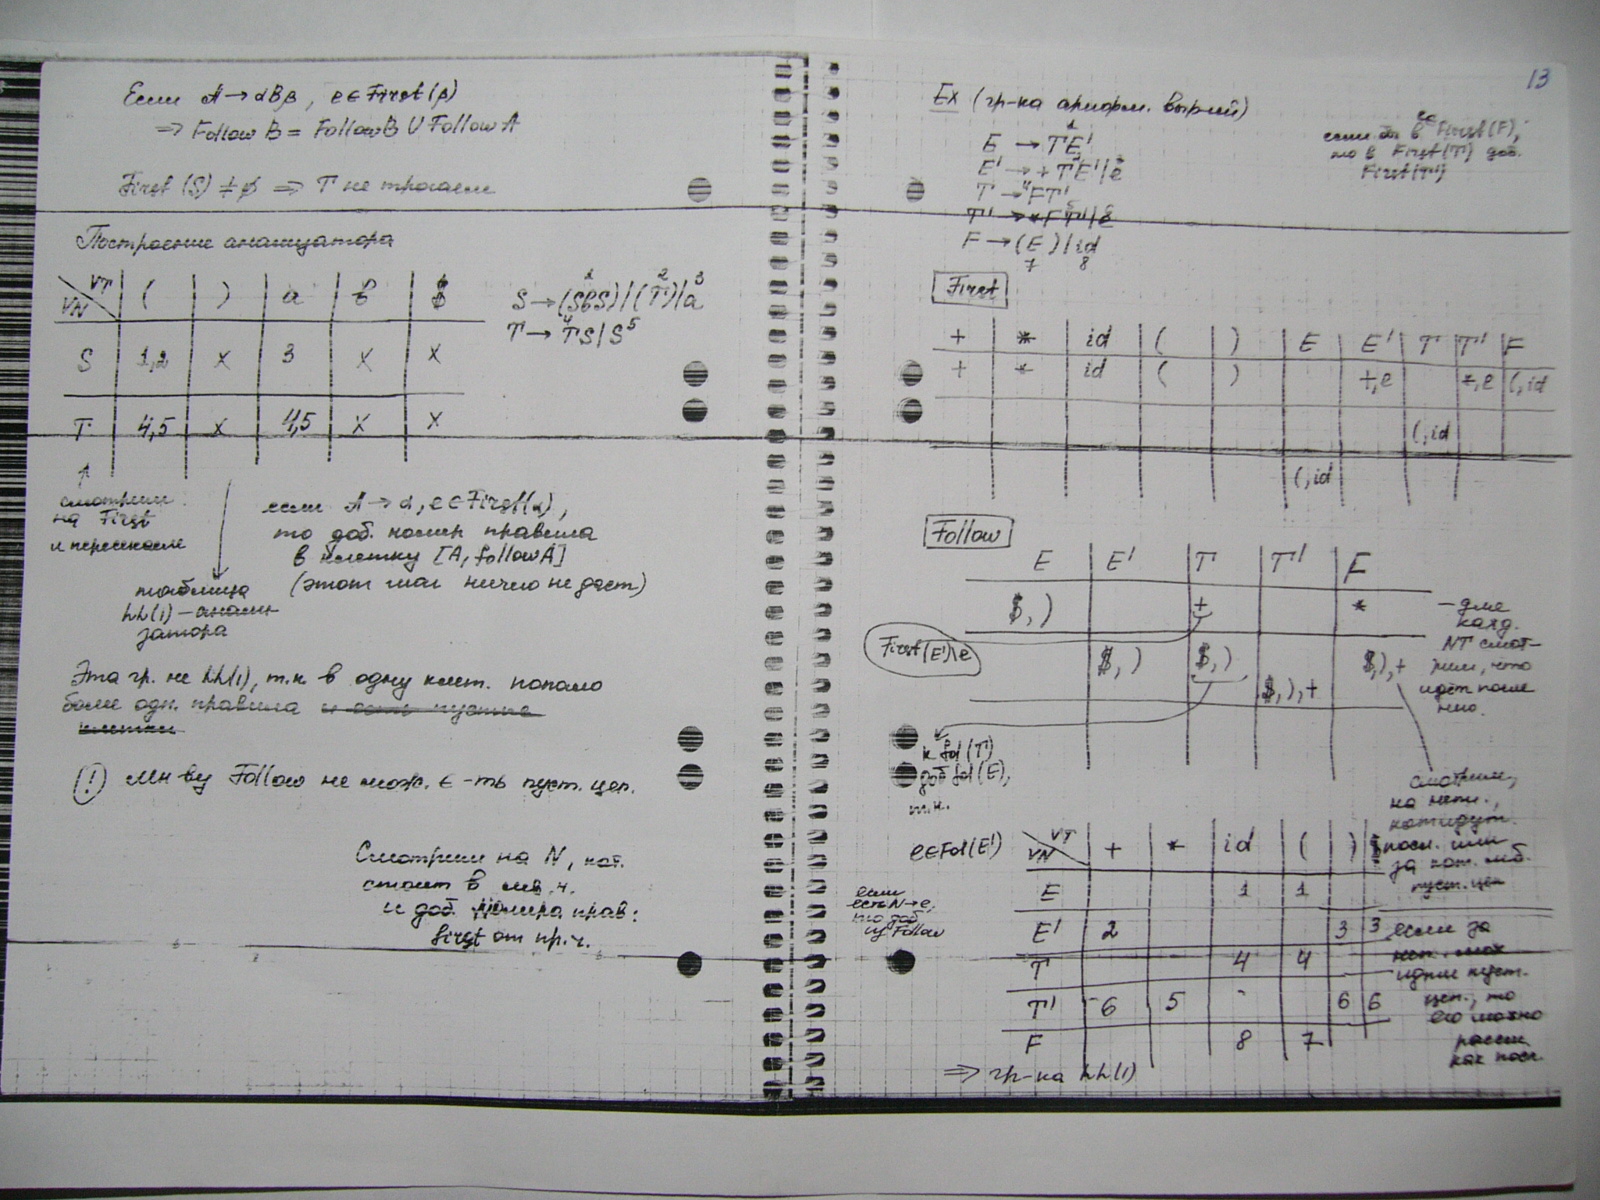 Если A → αBβ, e ∈ First(β)
⇒ Follow B = Follow B ∪ Follow A
First(S) ≠ ∅ ⇒ T не трогаем
Построение анализатора
VT VN | ( | ) | a | b | $
S | 1,2 | x | 3 | x | x
T | 4,5 | x | 4,5 | x | x
1 2 3
S → (SbS) | (T) | a
T → 4 TS | S 5
смотрим
на First
и пересекаем
таблица
LL(1) – анали-
затора
если A → α, e ∈ First(α),
то доб. номер правила
в клетку [A, follow A]
(этот шаг ничего не даст)
Эта гр. не LL(1), т.к в одну клет. попало
более одн. правила и есть пустые
клетки
(!) мн-ву Follow не мож. ∈-ть пуст. цеп.
Смотрим на N, кот.
стоит в лев. ч.
и доб. номера прав:
first от пр. ч.
13
Ex (гр-ка арифм. выр-ий)
1
E → TE'
E' → + TE' | e
T → 4 FT'
T' → * FT' | e
F → (E) | id
7 8
если e в First(F),
то в First(T) доб.
First(T')
First
+ | * | id | ( | ) | E | E' | T | T' | F
+ | * | id | ( | ) | | +,e | | *,e | (,id
(,id
(,id
Follow
E | E' | T | T' | F
$,) | | + | | *
First(E')\e
$,) | $,) | $,),+ | $,),+
– для
кажд.
NT смот-
рим, что
идёт после
него.
к fol(T)
доб fol(E),
т.к.
e ∈ Fol(E')
смотрим,
на нет.,
кот идут
посл. или
за кот. мб.
пуст. цеп
VT VN | + | * | id | ( | ) | $
E | | | 1 | 1
E' | 2 | | | | 3 | 3
T | | | 4 | 4
T' | 6 | 5 | | | 6 | 6
F | | | 8 | 7
если
есть N→e,
то доб
из Follow
если за
идти пуст.
цеп., то
его можно
рассм.
как посл.
⇒ гр-ка LL(1)